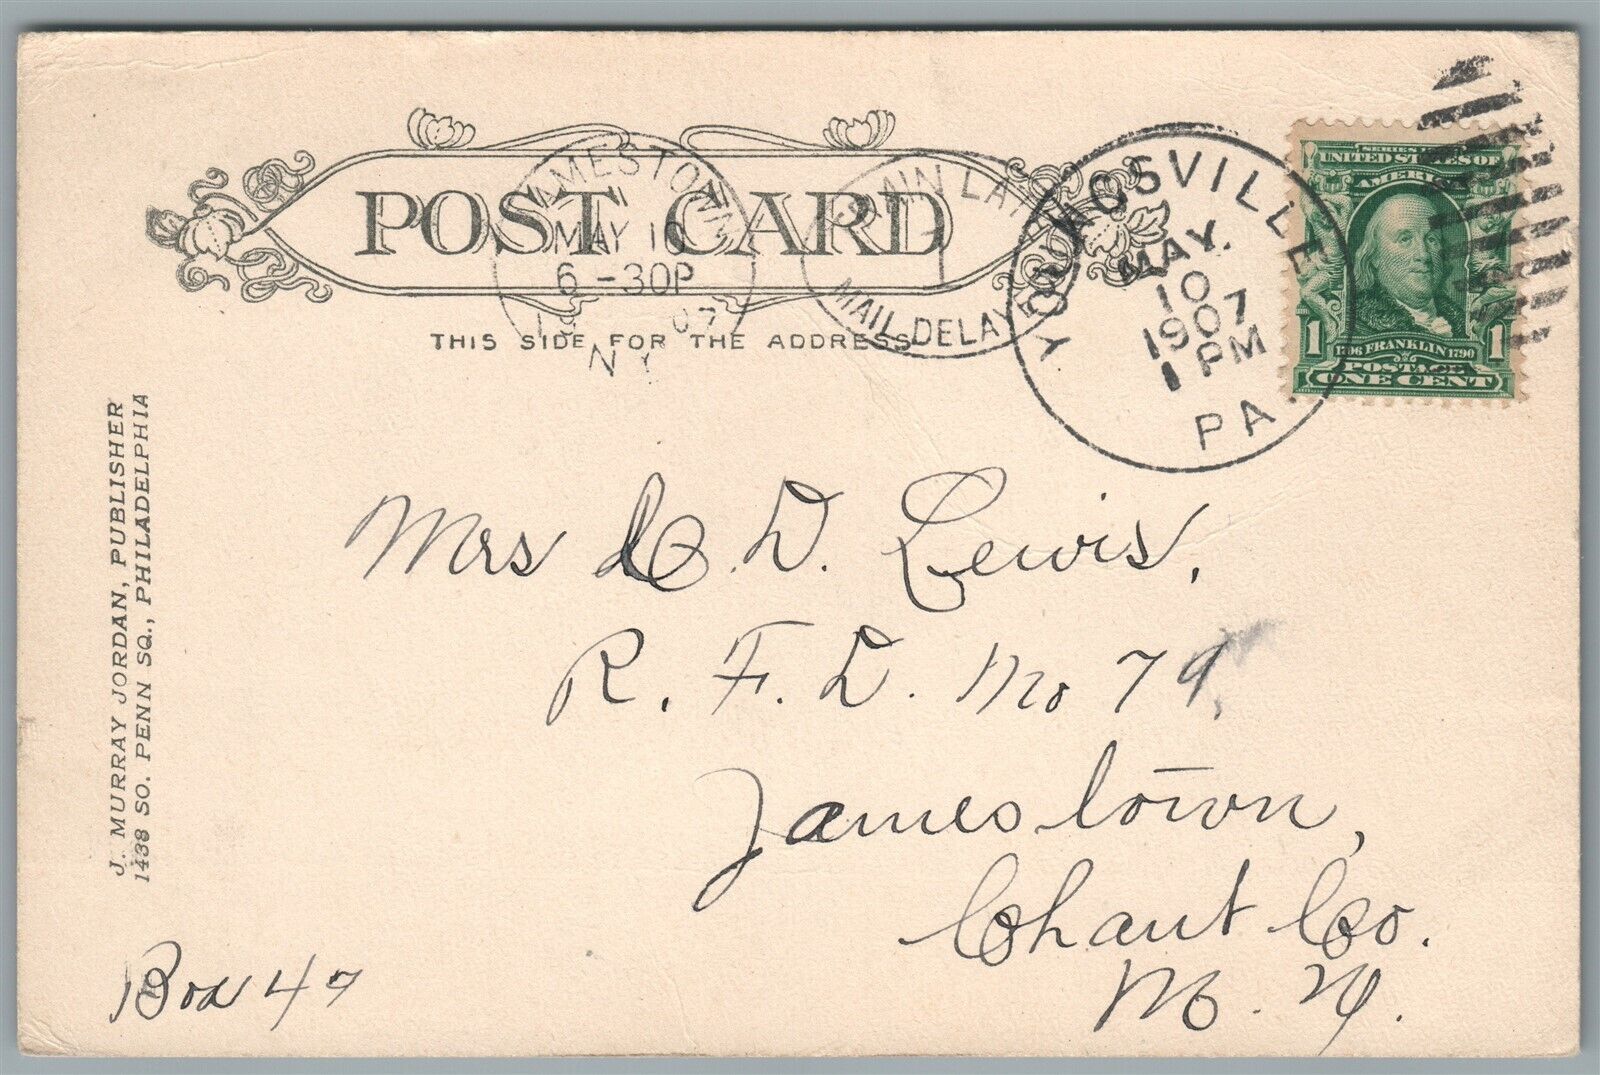 POST CARD
THIS SIDE FOR THE ADDRESS
JAMESTOWN
MAY 10
6-30P
N.Y.
TRAIN LATE
MAIL DELAYED
YOUNGSVILLE
MAY.
10
1907
1 PM
PA.
UNITED STATES OF
AMERICA
1 1706 FRANKLIN 1790 1
POSTAGE
ONE CENT
J. MURRAY JORDAN, PUBLISHER
1438 SO. PENN SQ., PHILADELPHIA
Mrs C. D. Lewis,
R. F. D. No 79,
Jamestown,
Chaut Co.
N. Y.
Box 47